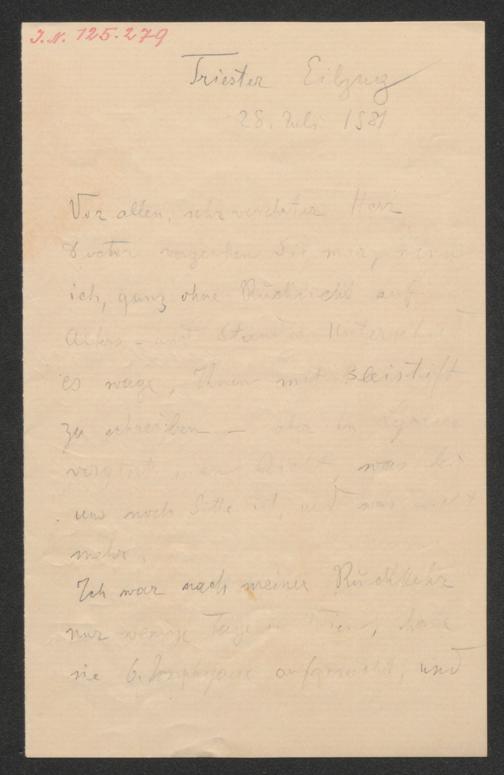 J.N. 125.279
Triester Eilzug
28. Juli 1881
Vor allem, sehr verehrter Herr
Doctor vergeben Sie mir, wenn
ich, ganz ohne Rücksicht auf
Alters- und Standes Unterschied
es wage, Ihnen mit Bleistift
zu schreiben – aber in
vergisst man leicht, was bei
uns noch Sitte ist, und was nicht
mehr.
Ich war nach meiner Rückkehr
nur wenige Tage in Wien, habe
nie aufgesucht, und